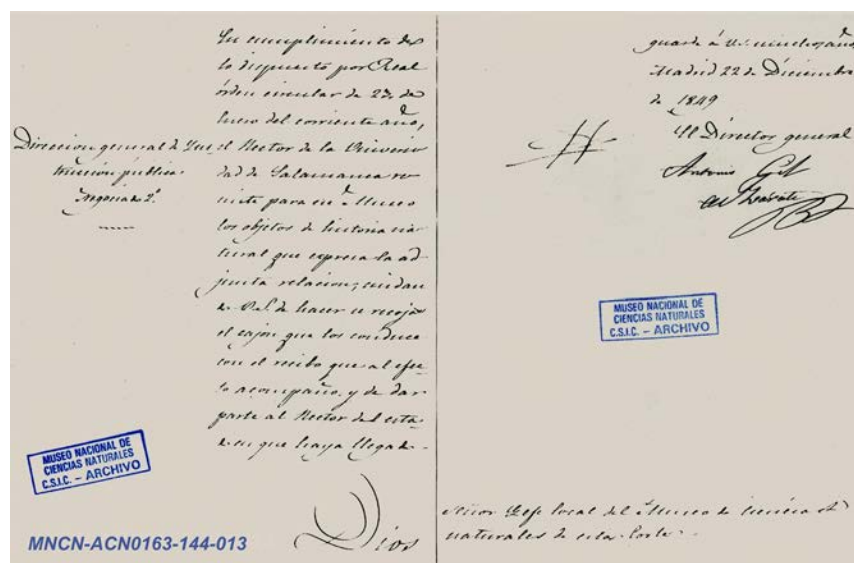 En cumplimiento de
lo dispuesto por Real
órden circular de 27 de
Enero del corriente año,
el Rector de la Universi
dad de Salamanca re
mite para ese Museo
los objetos de historia na
tural que expresa la ad
junta relacion; cuidan
do de hacer se recoja
el cajon que los conduce
con el recibo que al efec
to acompaño, y de dar
parte al Rector del esta
do en que haya llegado.
Dios
Direccion general de Ins
truccion pública.
Negociado 2º.
MUSEO NACIONAL DE
CIENCIAS NATURALES
C.S.I.C. – ARCHIVO
MNCN-ACN0163-144-013
guarde á V. muchos años,
Madrid 22 de Diciembre
de 1849
El Director general
Antonio Gil
de Zarate
MUSEO NACIONAL DE
CIENCIAS NATURALES
C.S.I.C. – ARCHIVO
Señor Gefe local del Museo de Ciencias
naturales de esta Corte.